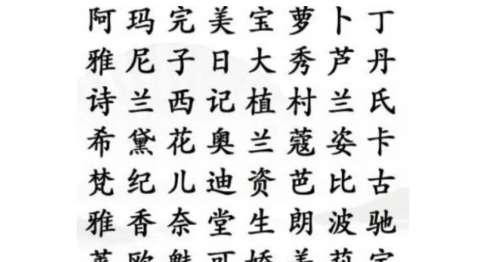 阿玛完美宝萝卜丁
雅尼子日大秀芦丹
诗兰西记植村兰氏
希黛花奥兰蔻姿卡
梵纪儿迪资芭比古
雅香奈堂生朗波驰
欧魅可娇美莉宝